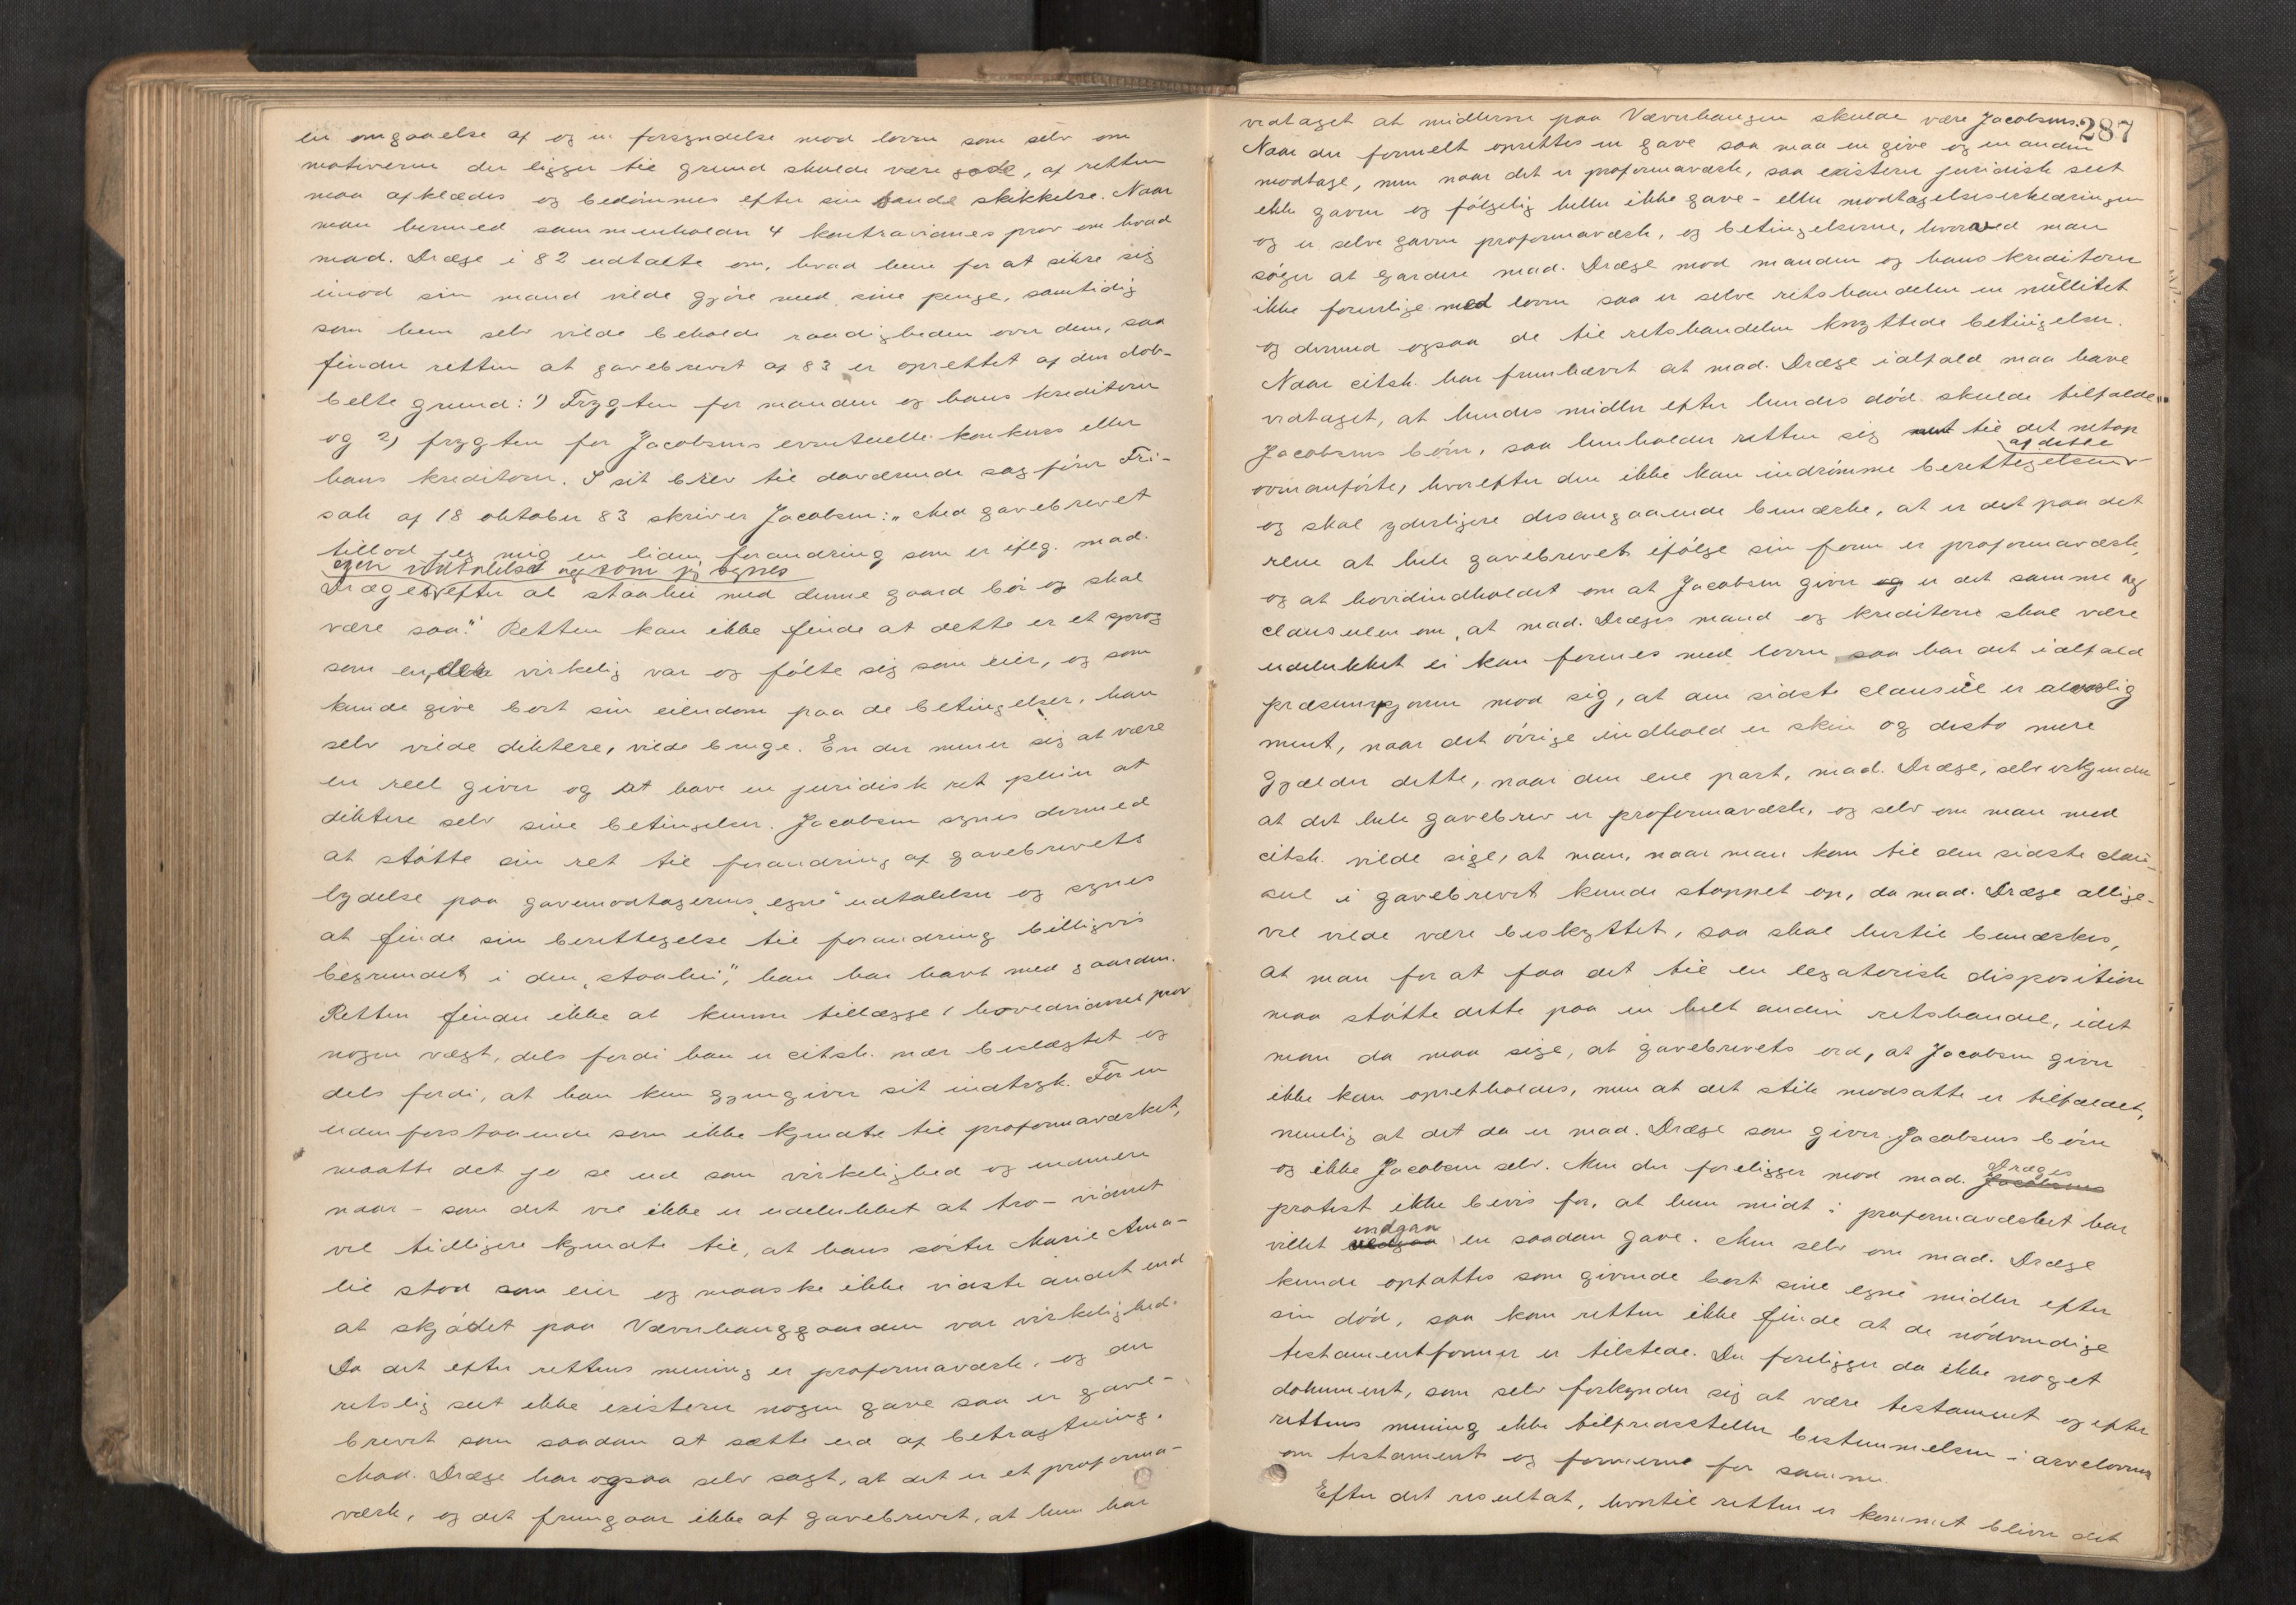 en omgaaelse af og en forsyndelse mod loven som selv om
motiverne der ligger til grund skulde være gode, af retten
maa afklædes og bedømmes efter sin sande skikkelse. Naar
man hermed sammenholder 4 kontravidnes prov om hvad
mad. Dræge i 82 udtalte om, hvad hun for at sikre sig
imod sin mand vilde gjøre med sine penge, samtidig
som hun selv vilde beholde raadigheden over dem, saa
finder retten at gavebrevet af 83 er oprettet af den dob-
belte grund: 1) Frygten for manden og hans kreditorer
og 2) frygten for Jacobsens eventuelle konkurs eller
hans kreditorer. I sit brev til daværende sagfører Fri-
sak af 18 oktober 83 skriver Jacobsen: „Med gavebrevet
tillod jeg mig en liden forandring som er ifølg. mad.
egen udtalelse og som jeg synes
Dræges efter al staahei med denne gaard bør og skal
være saa." Retten kan ikke finde at dette er et sprog
som en, der virkelig var og følte sig som eier, og som
kunde give bort sin eiendom paa de betingelser, han
selv vilde diktere, vilde bruge. En der mener sig at være
en reel giver og at have en juridisk ret pleier at
diktere selv sine betingelser. Jacobsen synes dermed
at støtte sin ret til forandring af gavebrevets
lydelse paa gavemodtagerens „egne" udtalelser og synes
at finde sin berettigelse til forandring billigvis
begrundet i den „staahei", han har havt med gaarden.
Retten finder ikke at kunne tillægge 1 hovedvidnet prov
nogen vægt, dels fordi han er citsk. nær beslægtet og
dels fordi, at han kun gjengiver sit indtryk. For en
udenforstaaende som ikke kjendte til proformaværket,
maatte det jo se ud som virkelighed og endmere
naar – som det vel ikke er udelukket at tro – vidnet
vel tidligere kjendte til, at hans søster Marie Ama-
lie stod som eier og maaske ikke vidste andet end
at skjødet paa Værnhanggaarden var virkelighed.
Da det efter rettens mening er proformaværk, og der
retslig seet ikke existerer nogen gave saa er gave-
brevet som saadan at sætte ud af betragtning.
Mad. Dræge har ogsaa selv sagt, at det er et proforma-
værk, og det fremgaar ikke af gavebrevet, at hun har
287
vedtaget at midlerne paa Værnhaugen skulde være Jacobsens.
Naar der formelt oprettes en gave saa maa en give og en anden
modtage, men naar det er proformaværk, saa existerer juridisk seet
ikke gaven og følgelig heller ikke gave- eller modtagelseserklæringen
og er selve gaven proformaværk, og betingelserne, hvorved man
søger at gardere mad. Dræge mod manden og hans kreditorer
ikke forenlige med loven saa er selve retshandelen en nullitet
og dermed ogsaa de til retshandelen knyttede betingelser.
Naar citsk. har fremhævet at mad. Dræge ialfald maa have
vedtaget, at hendes midler efter hendes død skulde tilfalde
Jacobsens børn, saa henholder retten sig til det netop
af dette
ovenanførte, hvorefter den ikke kan indrømme berettigelsen
og skal yderligere desangaaende bemærke, at er det paa det
rene at hele gavebrevet ifølge sin form er proformaværk,
og at hovedindholdet om at Jacobsen giver og er det samme og
clausulen om, at mad. Dræges mand og kreditorer skal være
udelukket ei kan forenes med loven saa har det ialfald
præsumpjonen mod sig, at den sidste clausul er alvorlig
ment, naar det øvrige indhold er skin og desto mere
gjælder dette, naar den ene part, mad. Dræge, selv erkjender
at det hele gavebrev er proformaværk, og selv om man med
citsk. vilde sige, at man, naar man kom til den sidste clau-
sul i gavebrevet kunde stoppet op, da mad. Dræge allige-
vel vilde være beskyttet, saa skal hertil bemærkes,
at man for at faa det til en legatorisk disposition
maa støtte dette paa en helt anden retshandel, idet
man da maa sige, at gavebrevets ord, at Jacobsen giver
ikke kan opretholdes, men at det stik modsatte er tilfældet,
nemlig at det da er mad. Dræge som giver Jacobsens børn
og ikke Jacobsen selv. Men der foreligger mod mad. Jacobsens
Dræges
protest ikke bevis for, at hun midt i proformaværket har
indgaa
villet vedgaa en saadan gave. Men selv om mad. Dræge
kunde opfattes som givende bort sine egne midler efter
sin død, saa kan retten ikke finde at de nødvendige
testamentformer er tilstede. Der foreligger da ikke noget
dokument, som selv forkynder sig at være testament og efter
rettens mening ikke tilfredsstiller bestemmelsen i arveloven
om testament og formerne for samme.
Efter det resultat, hvortil retten er kommet bliver det